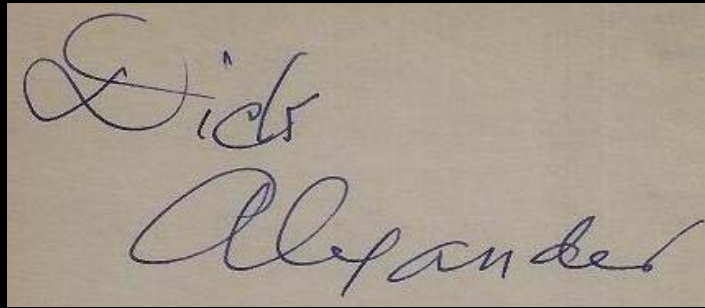 Dick
Alexander